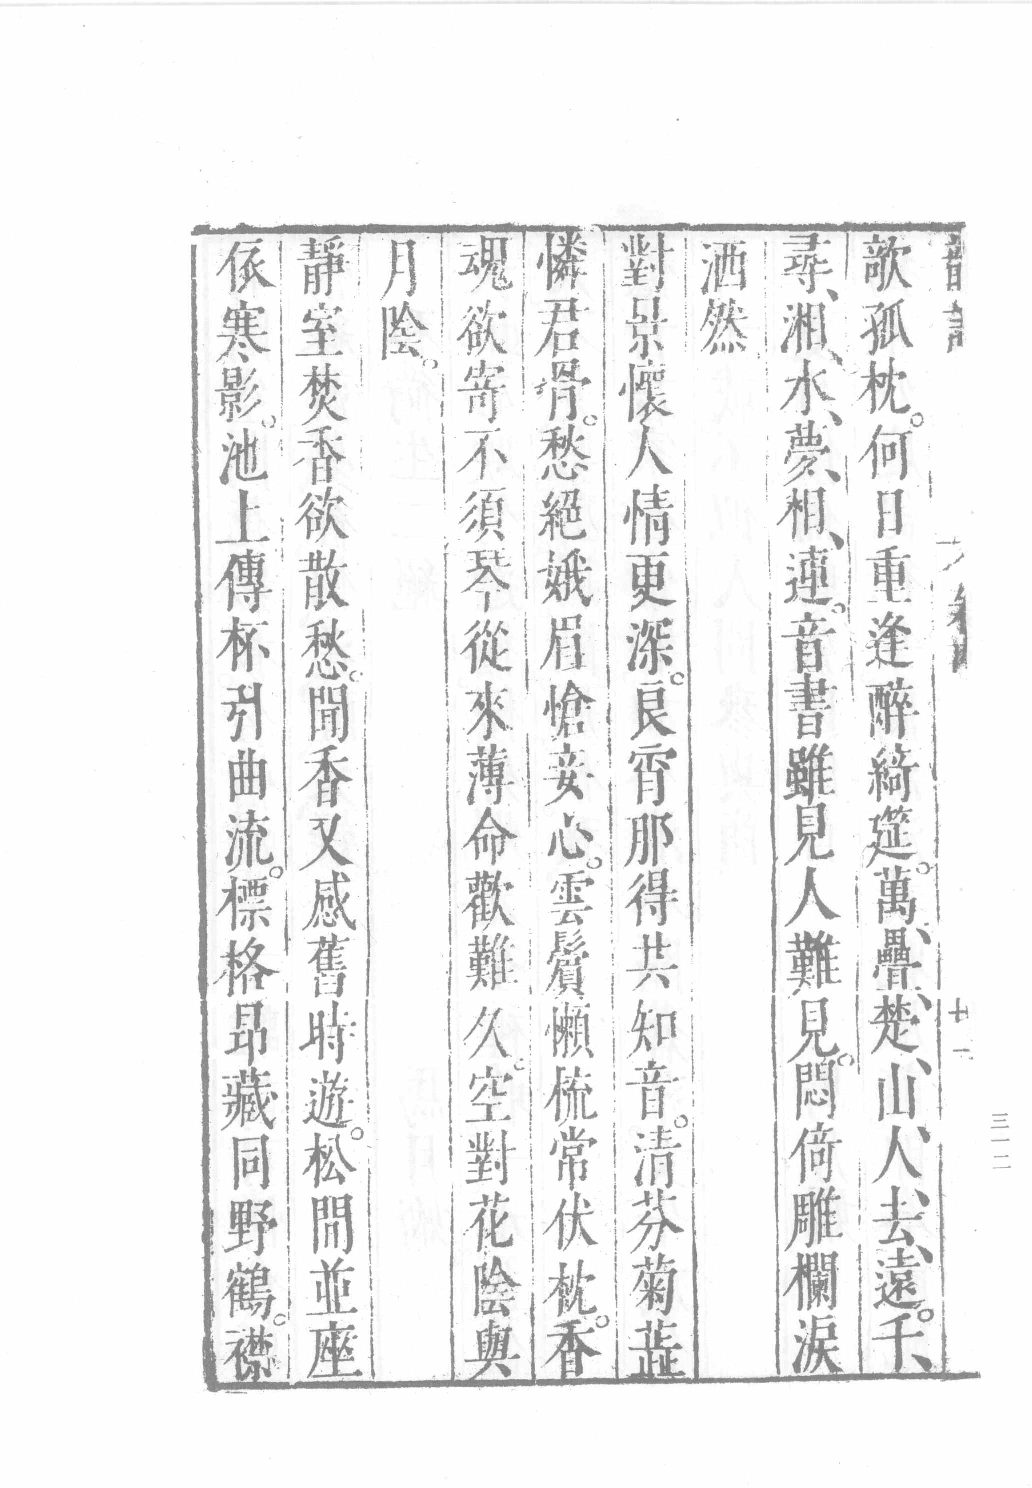 歌孤枕。何日重逢醉綺筵。萬、疊、楚、山、人、去、遠。千、
尋、湘、水、夢、相、連。音書雖見人難見。悶倚雕欄淚
洒然
對景懷人情更深。良宵那得共知音。清芬菊蕋
憐君骨。愁絕娥眉愴妾心。雲鬢懶梳常伏枕。香
魂欲寄不須琴。從來薄命歡難久。空對花陰與
月陰。
靜室焚香欲散愁。聞香又感舊時遊。松間並座
依寒影。池上傳杯引曲流。標格昂藏同野鶴。襟
十一
三一二